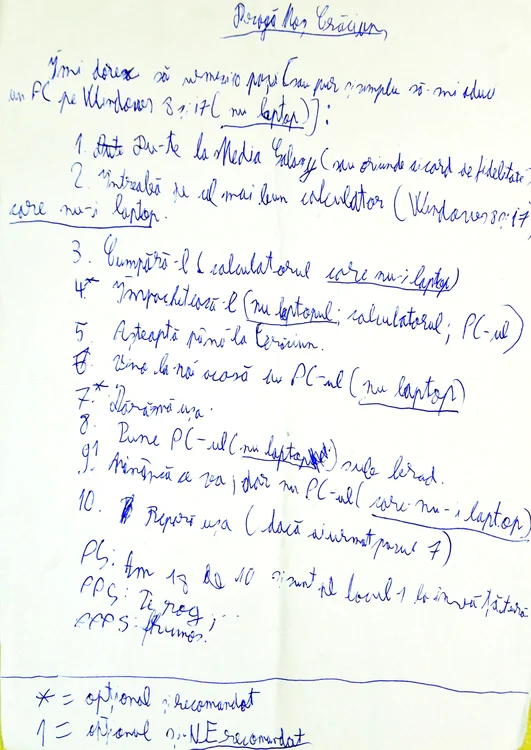 Dragă Moș Crăciun,
Îmi doresc să urmezi pașii (sau pur și simplu să-mi aduci
un PC pe Windows 8 și i7 (nu laptop)):
1. Du-te la Media Galaxy (sau oriunde ai card de fidelitate)
2. Întreabă pe cel mai bun calculator (Windows 8 și i7,
care nu-i laptop.
3. Cumpără-l (calculatorul care nu-i laptop)
4.* Împachetează-l (nu laptopul; calculatorul; PC-ul)
5. Așteaptă până la Crăciun.
6. Vino la noi acasă cu PC-ul (nu laptop)
7.* Dărâmă ușa.
8. Pune PC-ul (nu laptop) sub brad.
9.1 Mănâncă ce vrei, dar nu PC-ul (care nu-i laptop)
10. Repară ușa (dacă ai urmat pasul 7)
PS: Am 18 de 10 și sunt pe locul 1 la învățătură
PPS: Te rog;
PPPS: frumos.
* = opțional și recomandat
1 = opțional și NErecomandat